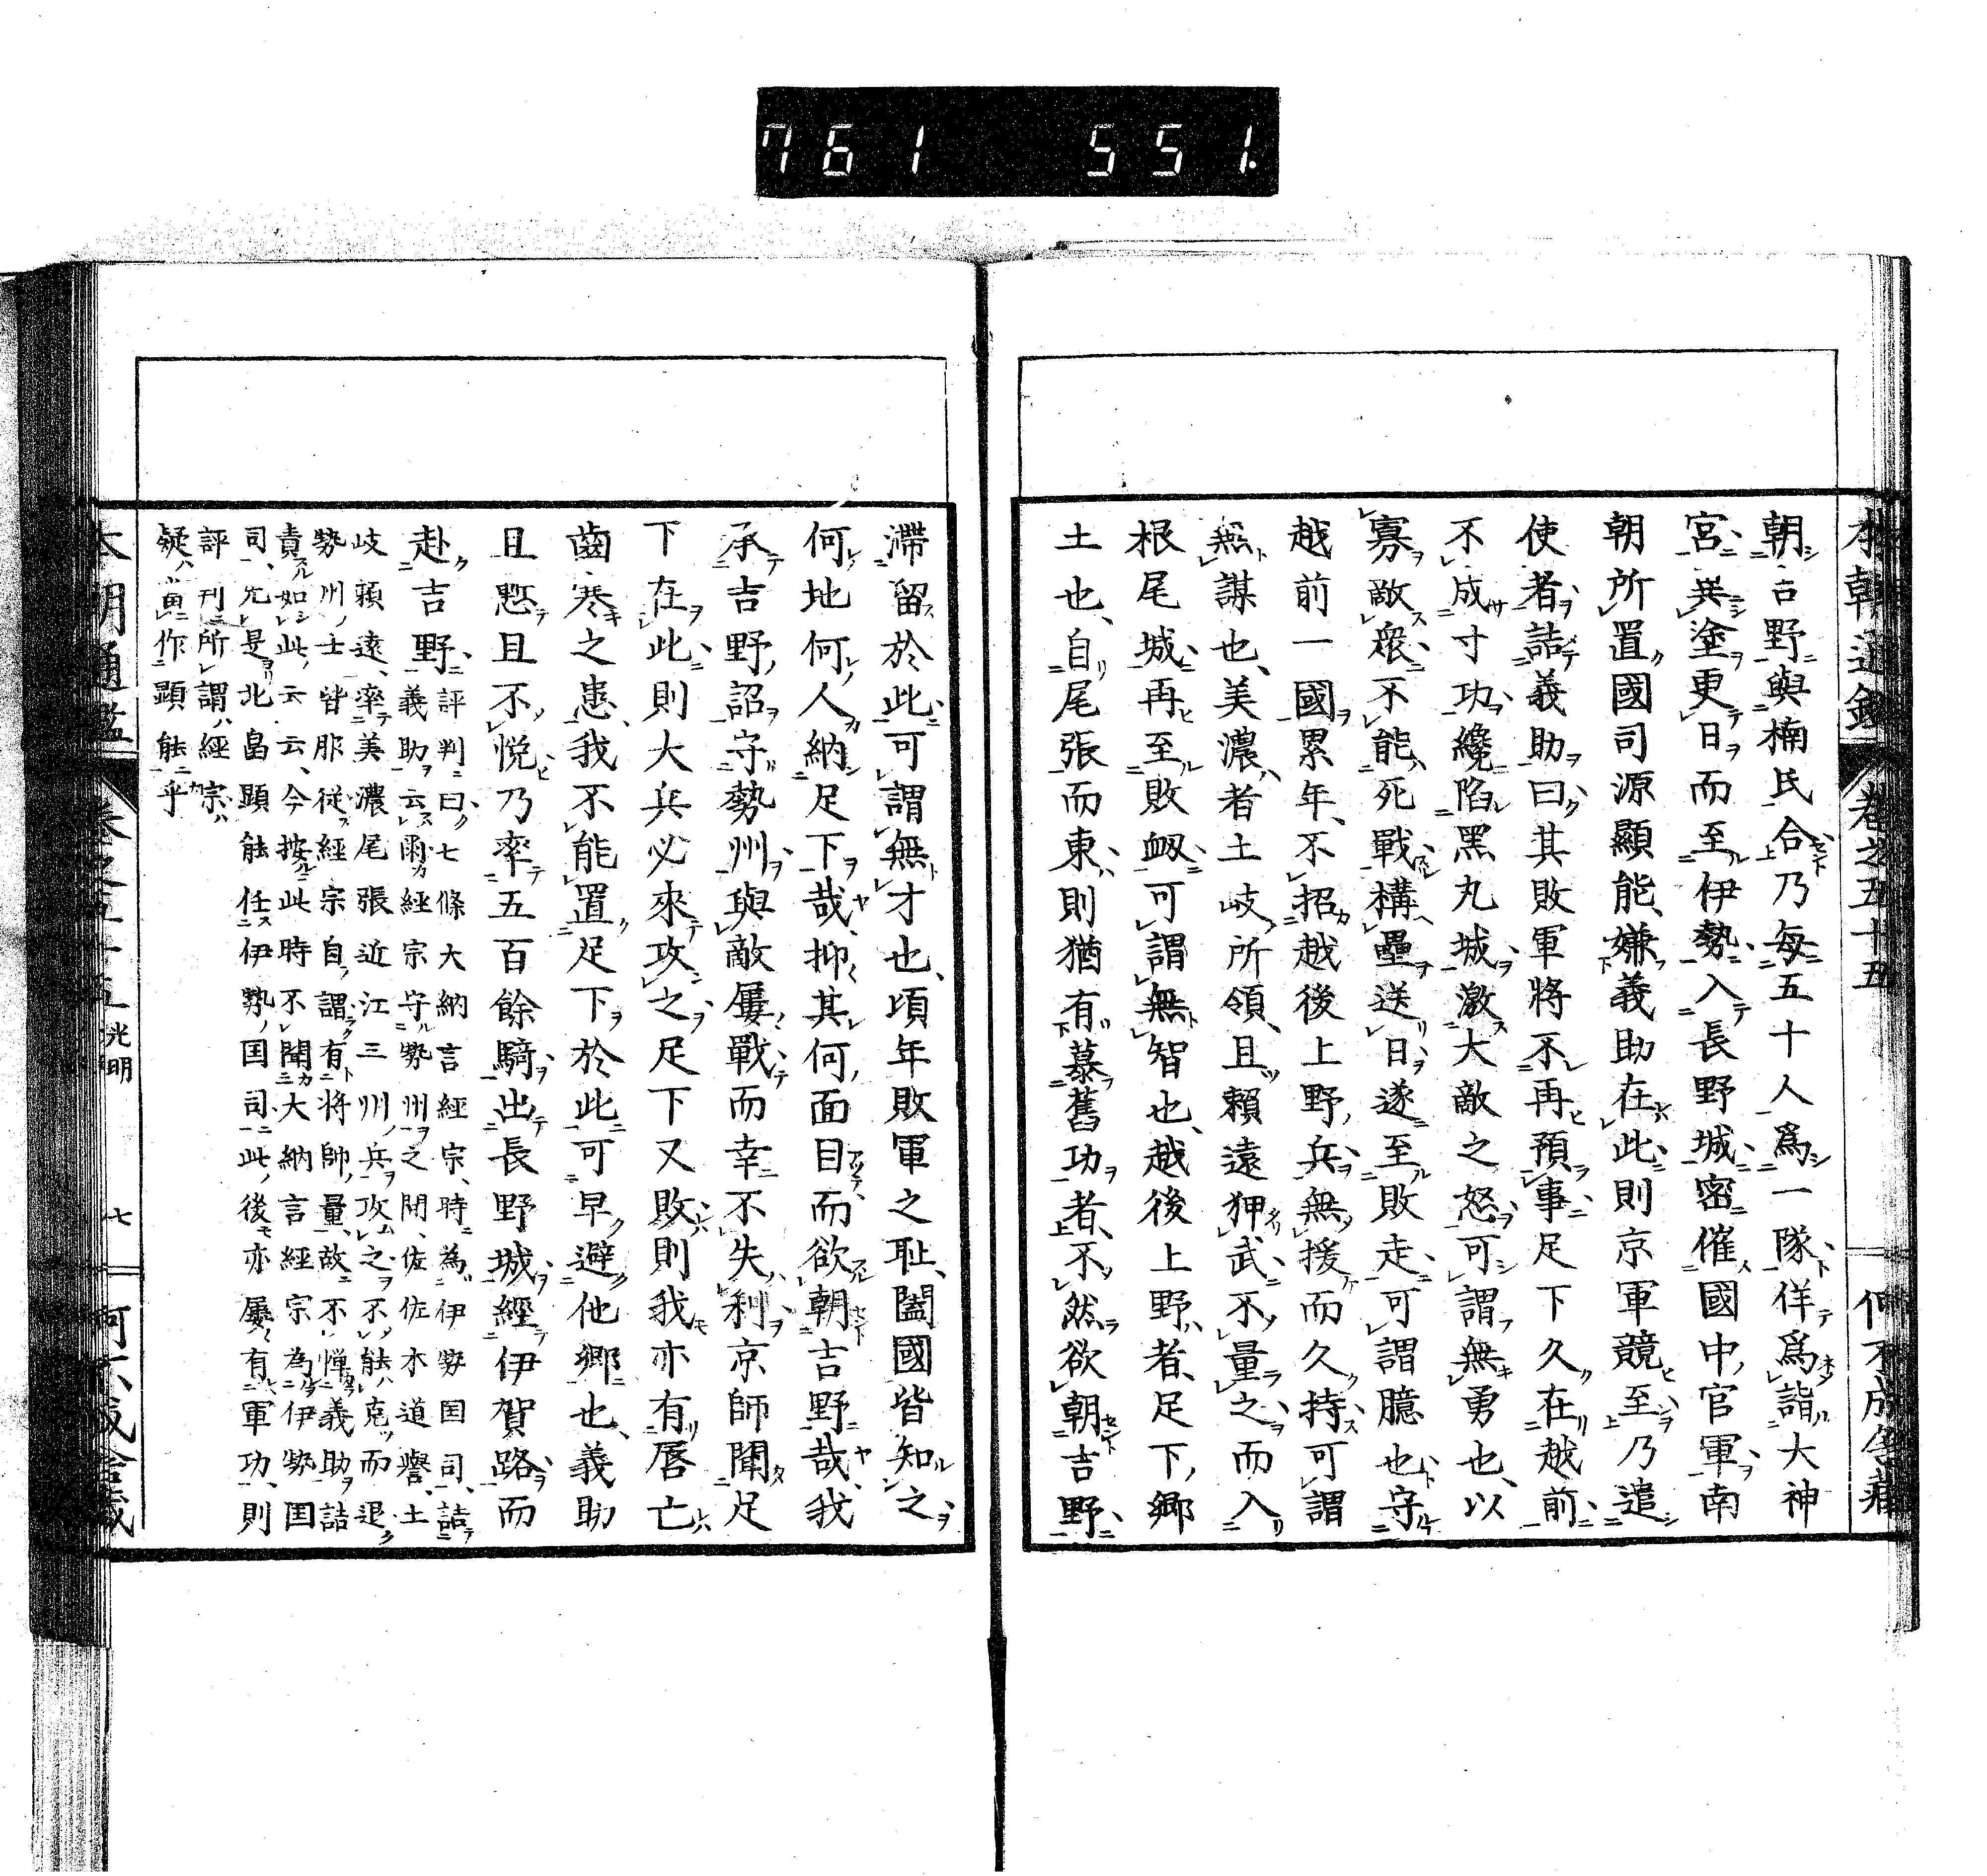 761 551.
本朝通鑑 卷之五十五
朝吉野與楠氏合乃每五十人爲一隊佯爲詣大神
宮異塗更日而至伊勢入長野城密催國中官軍南
朝所置國司源顯能嫌義助在此則京軍競至乃遣
使者詰義助曰其敗軍將不再預事足下久在越前
不成寸功纔陷黑丸城激大敵之怒可謂無勇也以
寡敵衆不能死戰構壘送日遂至敗走可謂臆也守
越前一國累年不招越後上野兵無援而久持可謂
無謀也美濃者土岐所領且賴遠狎武不量之而入
根尾城再至敗衂可謂無智也越後上野者足下鄉
土也自尾張而東則猶有慕舊功者不然欲朝吉野
滯留於此可謂無才也頃年敗軍之耻闔國皆知之
何地何人納足下哉抑其何面目而欲朝吉野哉我
承吉野詔守勢州與敵屢戰而幸不失利京師聞足
下在此則大兵必來攻之足下又敗則我亦有唇亡
齒寒之患我不能置足下於此可早避他鄉也義助
且慙且不悅乃率五百餘騎出長野城經伊賀路而
赴吉野評判曰七條大納言經宗時為伊勢国司詰
義助云爾經宗守勢州之間佐佐木道譽土
岐賴遠率美濃尾張近江三州兵攻之不能克而退
勢州士皆服從經宗自謂有將帥量故不憚義助詰
責如此云云今按此時不聞大納言經宗為伊勢国
司先是北畠顯能任伊勢国司此後亦屢有軍功則
評判所謂經宗
疑當作顯能乎
卷之五十五 光明 七